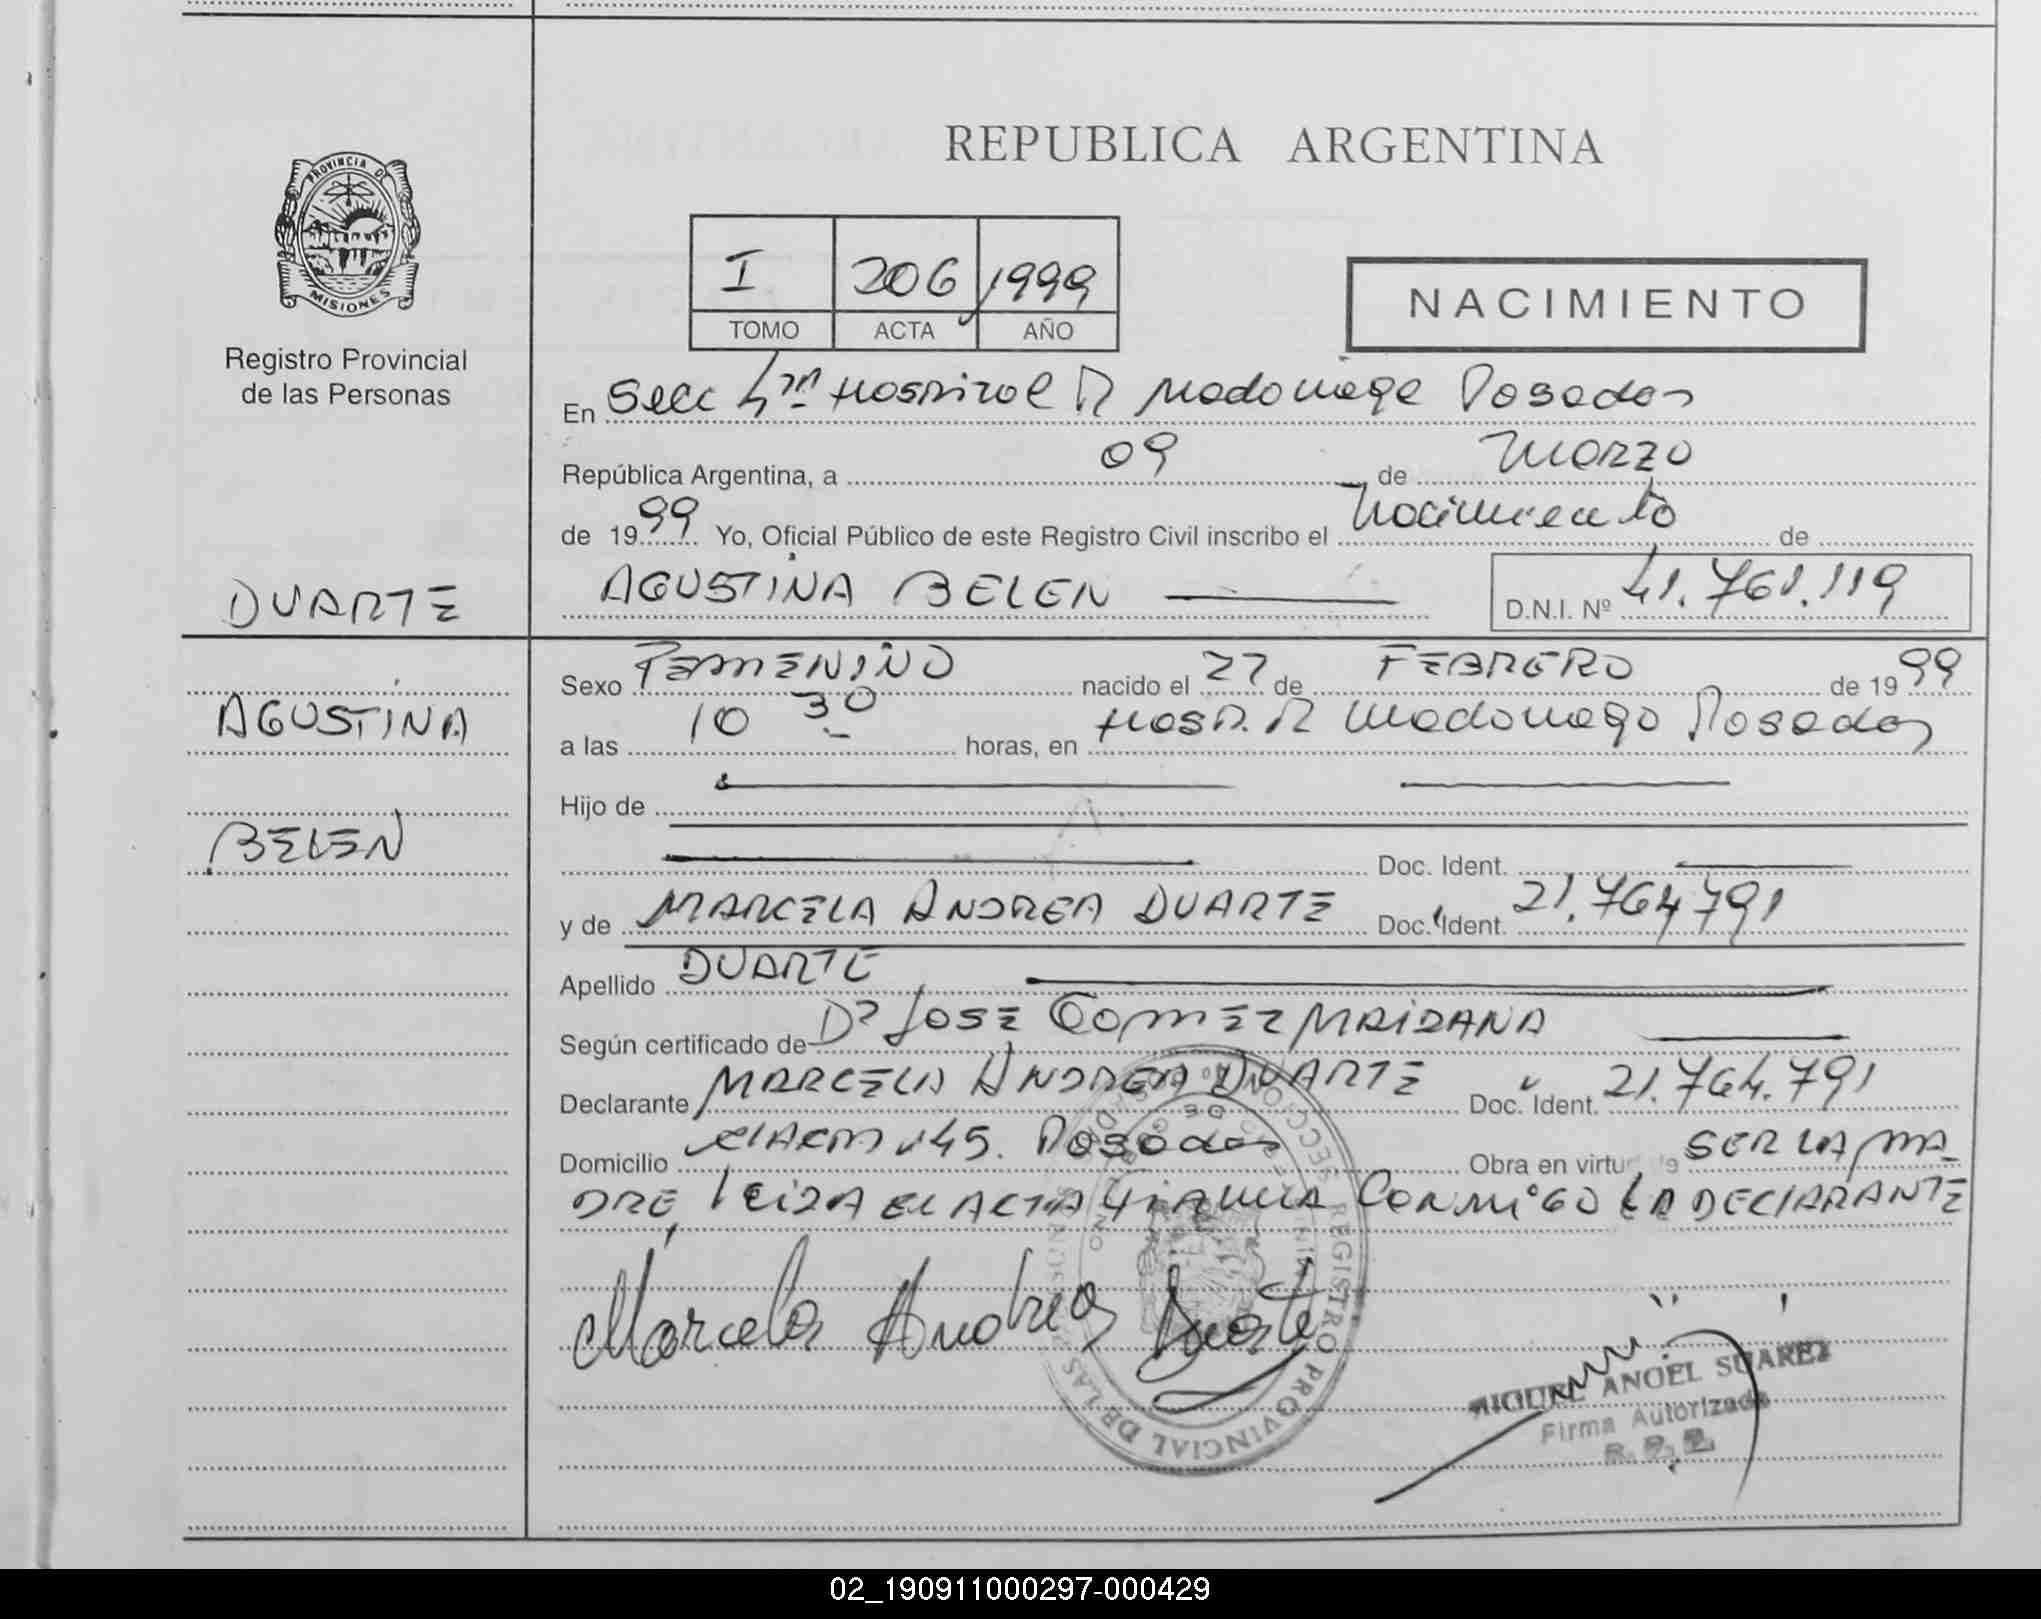 REPUBLICA ARGENTINA
PROVINCIA DE
MISIONES
Registro Provincial
de las Personas
I 206 1999
TOMO ACTA AÑO
NACIMIENTO
En Secc 4ta Hospital R Madariaga Posadas
República Argentina, a 09 de Marzo
de 1999 Yo, Oficial Público de este Registro Civil inscribo el Nacimiento de
DUARTE
AGUSTINA BELEN
D.N.I. Nº 41.761.119
Sexo FEMENINO nacido el 27 de FEBRERO de 1999
AGUSTINA
a las 10 30 horas, en Hosp. R Madariaga Posadas
Hijo de
BELEN
Doc. Ident.
y de MARCELA ANDREA DUARTE Doc. Ident. 21.764.791
Apellido DUARTE
Según certificado de Dr JOSE GOMEZ MAIDANA
Declarante MARCELA ANDREA DUARTE Doc. Ident. 21.764.791
Domicilio 145. Posadas Obra en virtud de SER LA MA_
DRE, LEIDA EL ACTA FIRMA CONMIGO LA DECLARANTE
Marcela Andrea Duarte
REGISTRO PROVINCIAL DE LAS
MIGUEL ANGEL SUAREZ
Firma Autorizada
R.P.P.
02_190911000297-000429